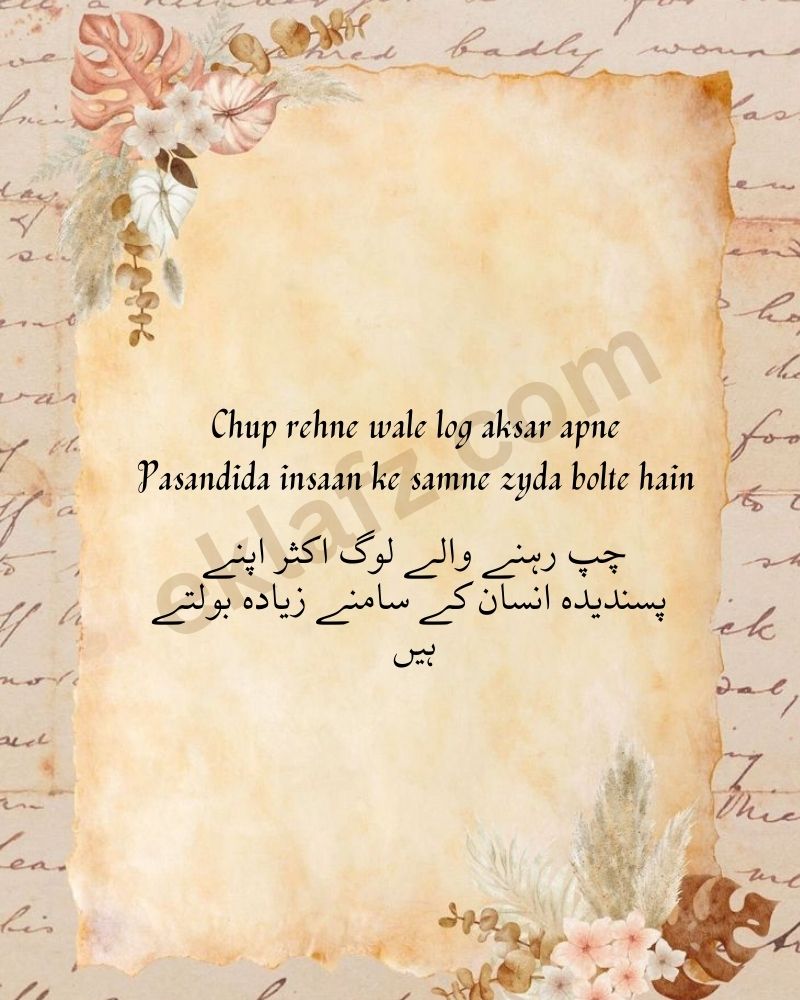 Chup rehne wale log aksar apne
Pasandida insaan ke samne zyda bolte hain
چپ رہنے والے لوگ اکثر اپنے
پسندیدہ انسان کے سامنے زیادہ بولتے
ہیں
eklafz.com
badly